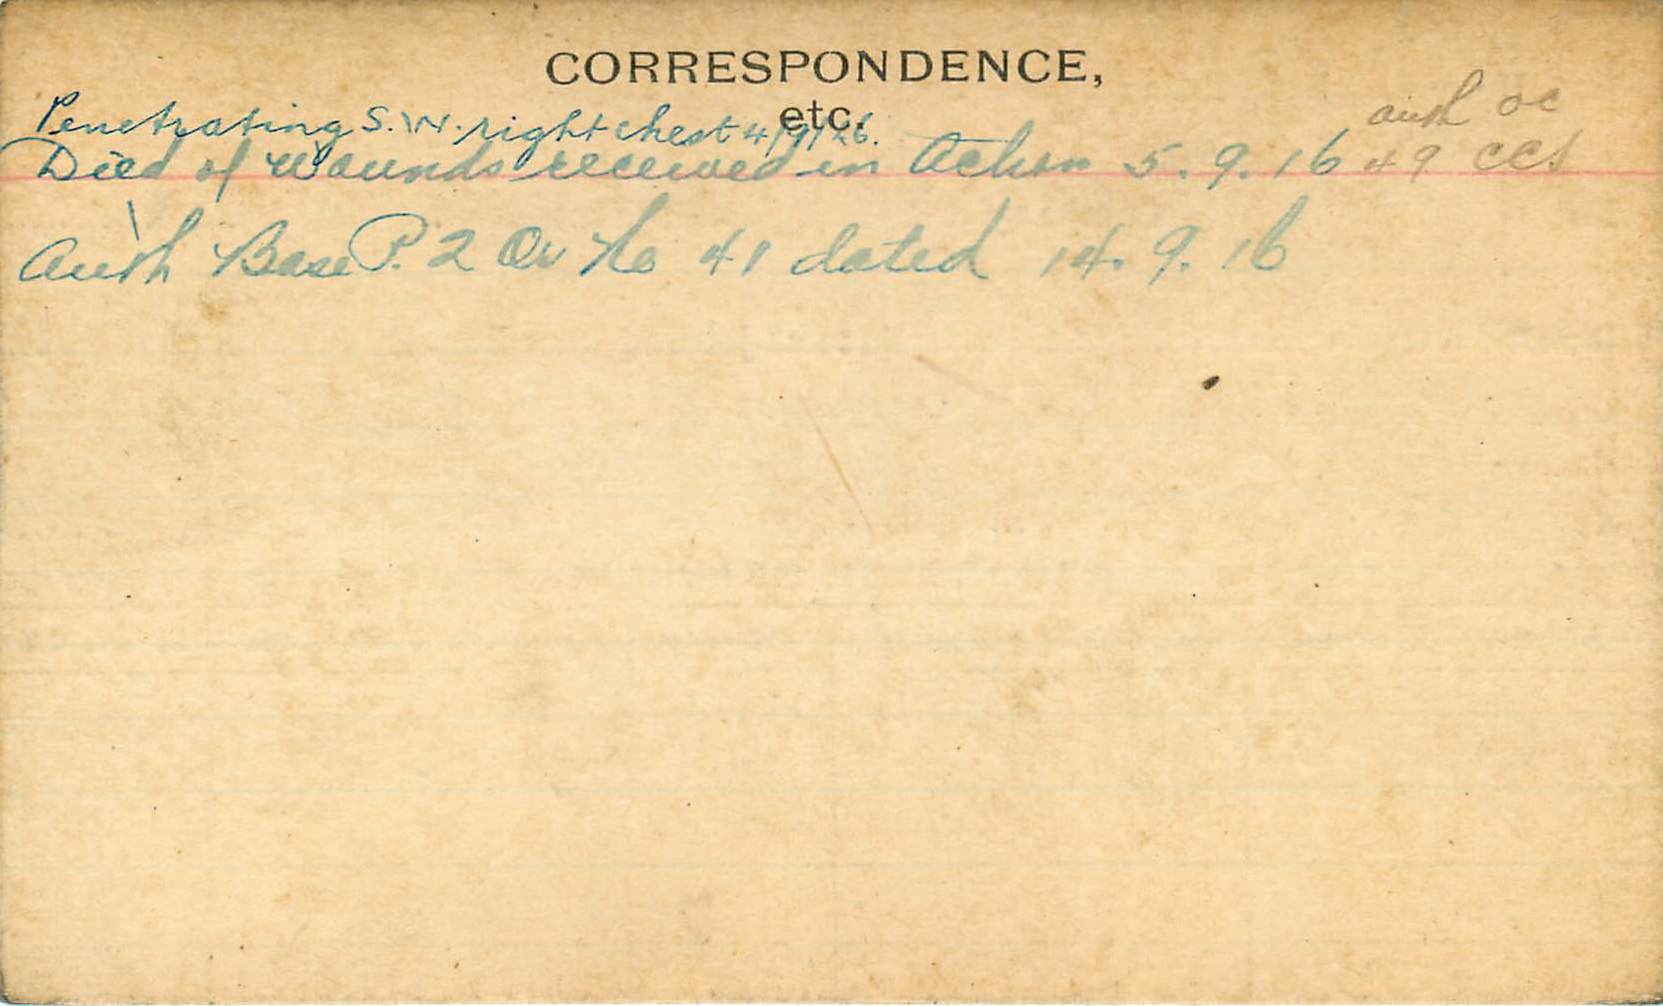 CORRESPONDENCE,
etc.
Penetrating S.W. right chest 4/9/16.
auth OC
Died of Wounds received in Action 5.9.16 49 CCS
Auth Base P. 2 Or No 41 dated 14.9.16